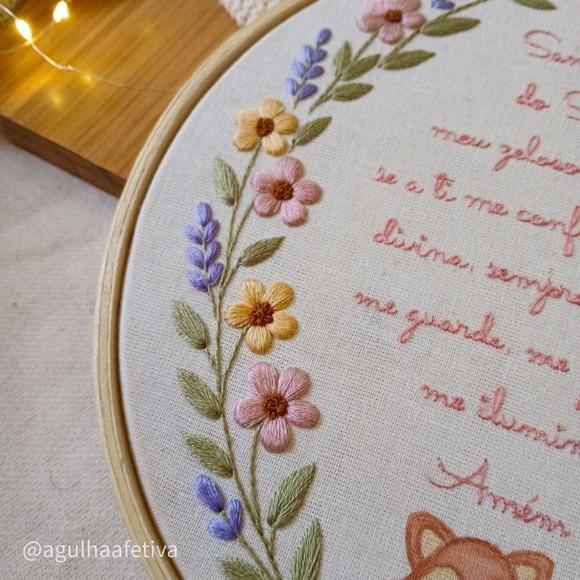 do
meu zeloso
se a ti me
divina, sempre
me guarde, me
me
Amém
@agulhaafetiva